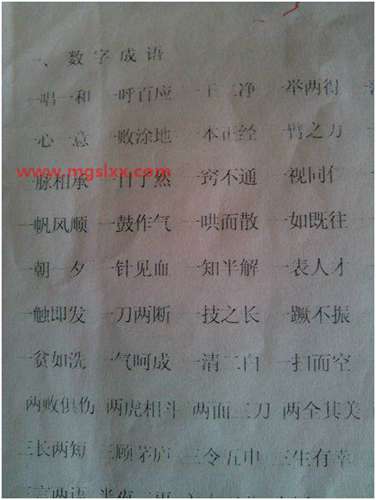 一、数字成语
一唱一和 一呼百应 一干二净 一举两得
一心一意 一败涂地 一本正经 一臂之力
www.mgslxx.com
一脉相承 一目了然 一窍不通 一视同仁
一帆风顺 一鼓作气 一哄而散 一如既往
一朝一夕 一针见血 一知半解 一表人才
一触即发 一刀两断 一技之长 一蹶不振
一贫如洗 一气呵成 一清二白 一扫而空
两败俱伤 两虎相斗 两面三刀 两全其美
三长两短 三顾茅庐 三令五申 三生有幸